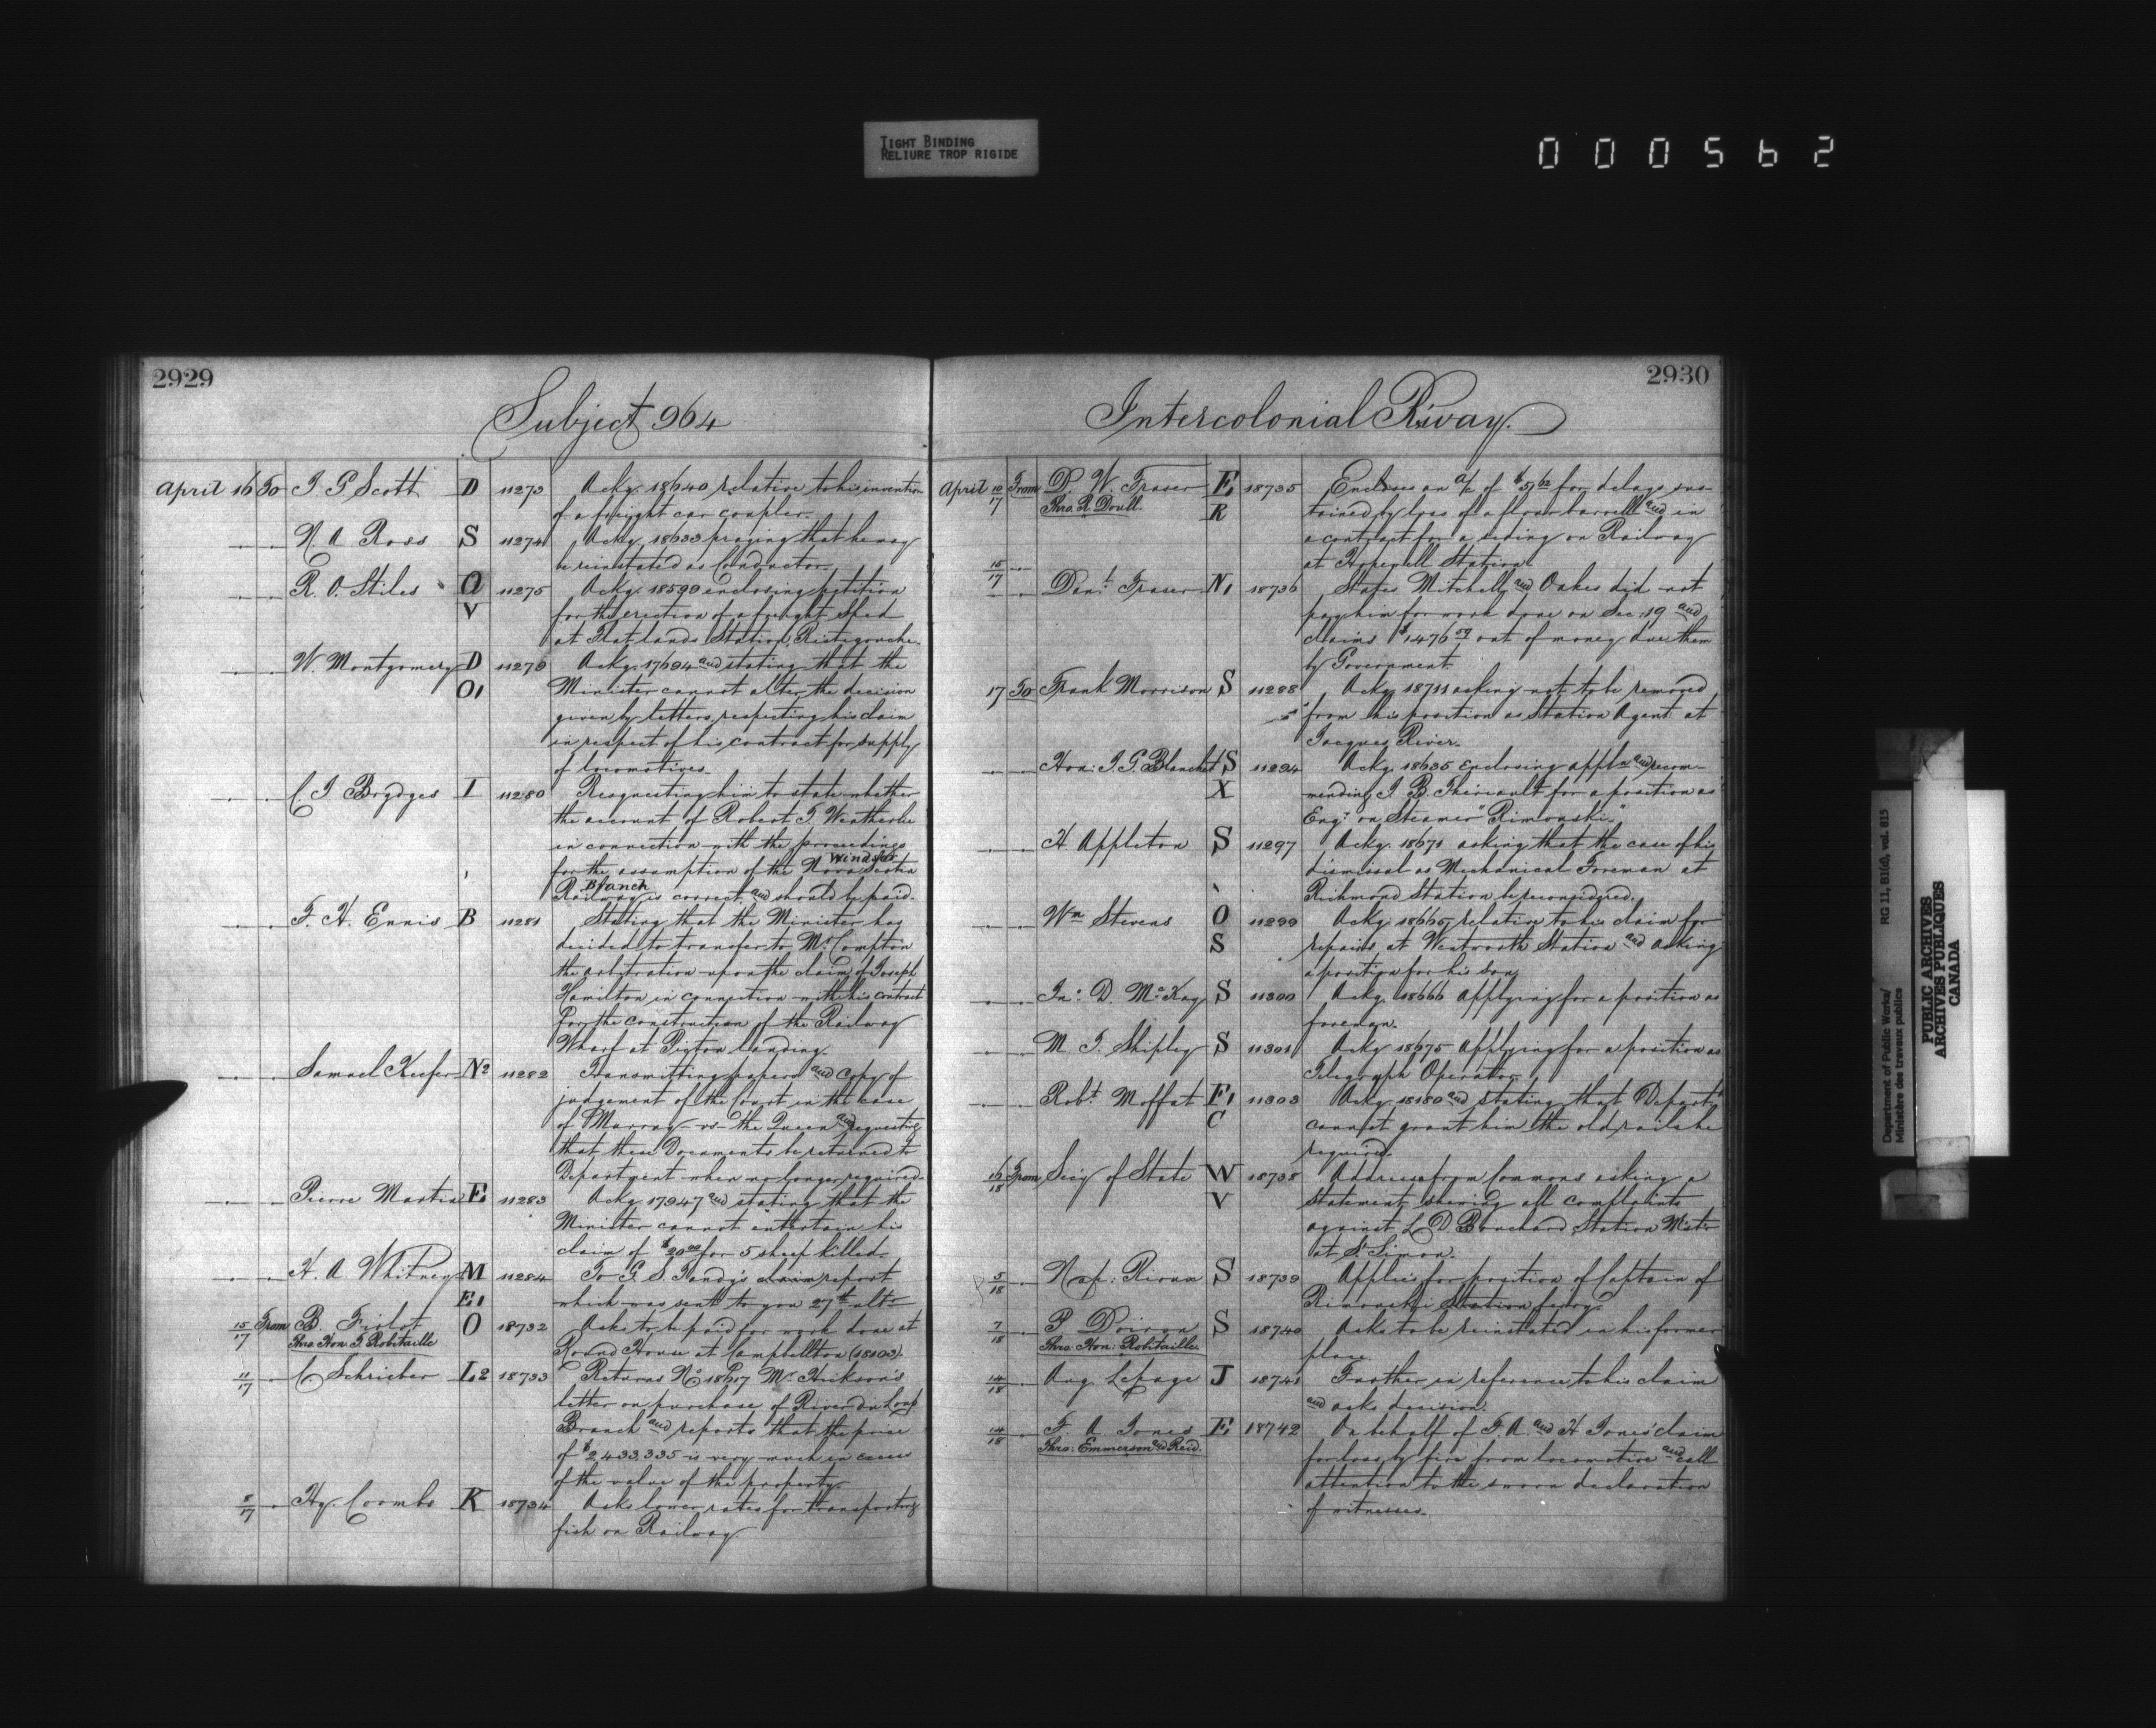 TIGHT BINDING
RELIURE TROP RIGIDE
000562
2929
Subject 964
April 16 To J G Scott D 11273 Ackg. 18640 relative to his invention
of a freight car coupler.
N. A Ross S 11274 Ackg. 18633 praying that he may
be reinstated as Conductor.
R. O. Stiles O 11275 Ackg. 18599 enclosing petition
V for the erection of a freight Shed
at Flatlands Station, Ristigouche.
W. Montgomery D 11279 Ackg. 17694 and stating that the
O1 Minister cannot alter the decision
given by letters respecting his claim
in respect of his contract for supply
of locomotives.
C J Brydges I 11280 Requesting him to state whether
the account of Robert T. Weatherbe
in connection with the proceedings
for the assumption of the Nova Scotia Windsor
Railway Branch is correct and should be paid.
F. H. Ennis B 11281 Stating that the Minister has
decided to transfer to Mr. Compton
the arbitration upon the claim of Joseph
Hamilton in connection with his contract
for the construction of the Railway
Wharf at Pictou Landing.
Samuel Keefer N2 11282 Transmitting papers and copy of
judgement of the Court in the case
of Murray vs the Queen and requesting
that these Documents be returned to
Department when no longer required.
Pierre Martin E1 11283 Ackg. 17947 and stating that the
Minister cannot entertain his
claim of $20.00 for 5 sheep killed.
H. A Whitney M 11284 For G. S. Tandy's claim report
E1 which was sent to you 27th ulto
15/17 From B. O 18732 Asks to be paid for work done at
Thro. Hon. T. Robitaille Round House at Campbellton (18103).
11/17 C Schrieber L2 18733 Returns No 18617 Mr. Hickson's
letter on purchase of River du Loup
Branch and reports that the price
of $2,433,335 is very much in excess
of the value of the property.
8/17 Hy. Coombs K 18734 Asks lower rates for transporting
fish on Railway.
2930
Intercolonial R'way.
April 10/17 From D W. Fraser E1 18735 Encloses an a/c of $51.62 for delays sus-
Thro. R. Doull. R tained by loss of a flour barrell and in
a contract for a siding on Railway
at Hopewell Station.
15/17 Danl. Fraser N1 18736 States Mitchell and Oakes did not
pay him for work done on Sec. 19 and
claims $1476.59 out of money due them
by Government.
17 To Frank Morrison S 11288 Ackg. 18711 asking not to be removed
from his position as Station Agent at
Jacques River.
Hon: J. G. Blanchet S 11294 Ackg. 18635 enclosing appln. and recom-
X mending J. B. Theriault for a position as
Engr. on Steamer "Rimouski."
H Appleton S 11297 Ackg. 18671 asking that the case of his
dismissal as Mechanical Foreman at
Richmond Station be reconsidered.
Wm Stevens O 11299 Ackg. 18665 relative to his claim for
S repairs at Wentworth Station and asking
a position for his son.
Jno. D. McKay S 11300 Ackg. 18666 applying for a position as
foreman.
M. J. Shipley S 11301 Ackg 18675 Applying for a position as
Telegraph Operator.
Robt. Moffat E1 11303 Ackg. 18180 and stating that Departt.
C cannot grant him the old rails he
required.
16/18 From Secy of State W 18738 Address from Commons asking a
V statement shewing all complaints
against L. D. Blanchard, Station Mastr
at St. Simon.
5/18 Nap: Rioux S 18739 Applies for position of Captain of
Rimouski Station ferry.
7/18 P Doiron S 18740 Asks to be reinstated in his former
Thro. Hon: Robitaille. place.
14/18 Aug. Lepage J 18741 Further in reference to his claim
and asks decision.
14/18 F. A. Jones E1 18742 On behalf of F. A. and H. Jones' claim
Thro: Emmerson and Reid. for loss by fire from locomotive and call
attention to the sworn declaration
of witnesses.
Department of Public Works/ RG 11, B1(d), vol. 815
Ministère des travaux publics
PUBLIC ARCHIVES
ARCHIVES PUBLIQUES
CANADA